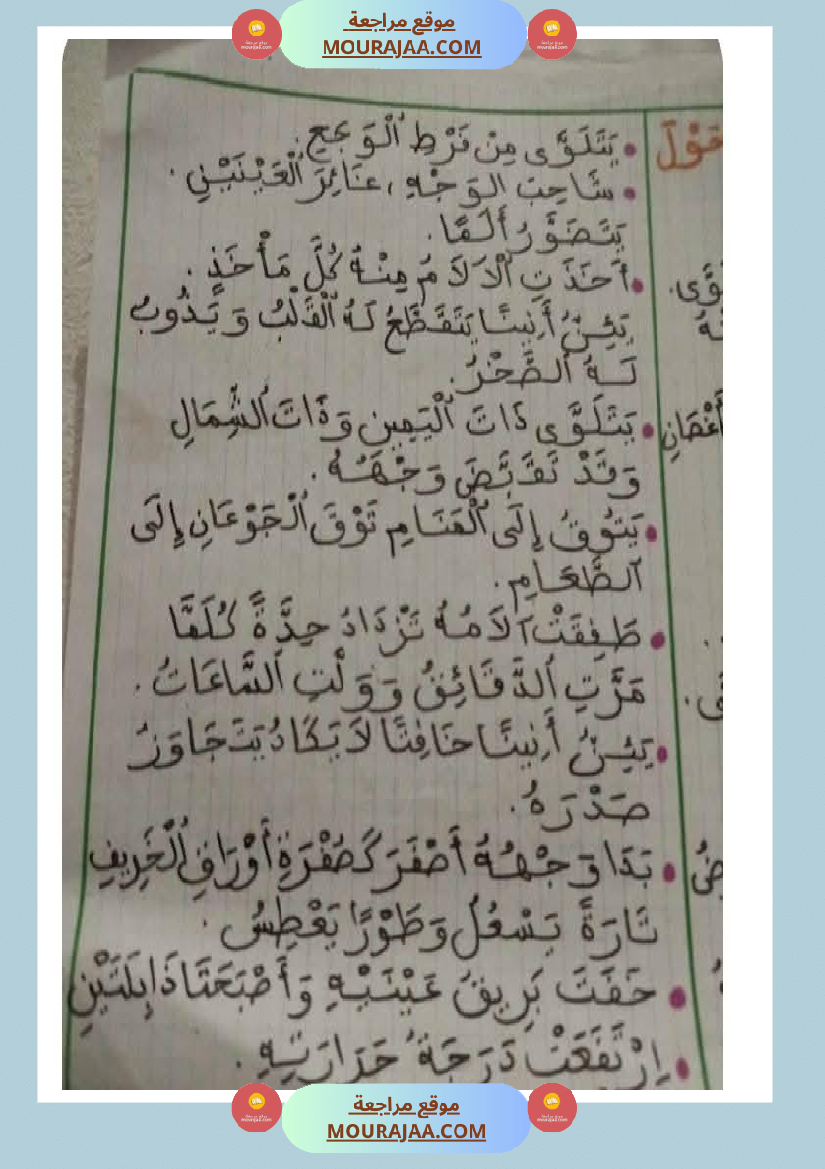 موقع مراجعة
MOURAJAA.COM
يَتَلَوَّى مِنْ فَرْطِ ٱلْوَجَعِ.
شَاحِبَ الوَجْهِ، غَائِرَ ٱلْعَيْنَيْنِ.
يَتَضَوَّرُ أَلَمًا.
أَخَذَتِ ٱلْآلَامُ مِنْهُ كُلَّ مَأْخَذٍ.
يَئِنُّ أَنِينًا يَتَقَطَّعُ لَهُ ٱلْقَلْبُ وَ يَذُوبُ
لَهُ ٱلصَّخْرُ.
يَتَلَوَّى ذَاتَ ٱلْيَمِينِ وَذَاتَ ٱلشِّمَالِ
وَقَدْ تَقَبَّضَ وَجْهُهُ.
يَتُوقُ إِلَى ٱلْمَنَامِ تَوْقَ ٱلْجَوْعَانِ إِلَى
ٱلطَّعَامِ.
طَفِقَتْ آلَامُهُ تَزْدَادُ حِدَّةً كُلَّمَا
مَرَّتِ ٱلدَّقَائِقُ وَ وَلَّتِ ٱلسَّاعَاتُ.
يَئِنُّ أَنِينًا خَافِتًا لَا يَكَادُ يَتَجَاوَزُ
صَدْرَهُ.
بَدَا وَجْهُهُ أَصْفَرَ كَصُفْرَةِ أَوْرَاقِ ٱلْخَرِيفِ
تَارَةً يَسْعُلُ وَطَوْرًا يَعْطِسُ.
خَفَتَ بَرِيقُ عَيْنَيْهِ وَأَصْبَحَتَا ذَابِلَتَيْنِ
اِرْتَفَعَتْ دَرَجَةُ حَرَارَتِهِ.
موقع مراجعة
MOURAJAA.COM